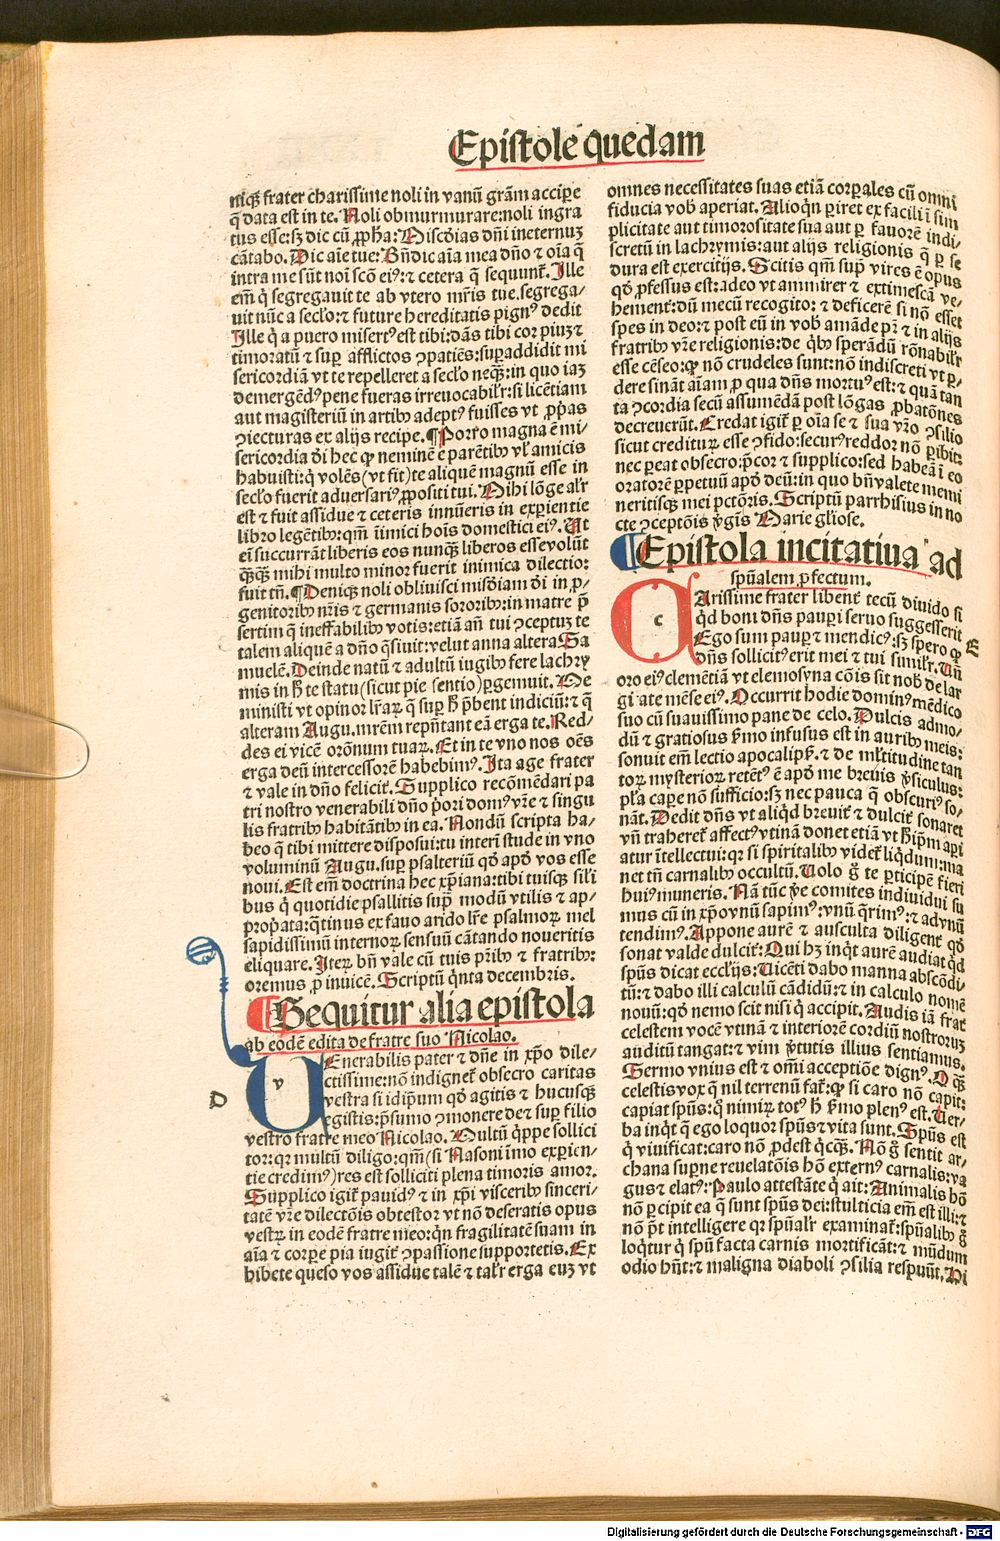 Epistole quedam
niqꝫ frater charissime noli in vanū grām accipe
q̄ data est in te. Noli obmurmurare: noli ingra
tus esse: sꝫ dic cū ꝓpħa: Miscḋias dn̄i ineternuꝫ
cātabo. Dic aīe tue: Bn̄dic aīa mea dn̄o ⁊ oīa q̄
intra me sūt noī scō eiꝰ: ⁊ cetera q̄ sequunt̄. Ille
em̄ q̇ segregauit te ab vtero mr̄is tue. segrega/
uit nūc a secl'o: ⁊ future hereditatis pignꝰ dedit
Ille q̇ a puero misertꝰ est tibi: dās tibi cor piuꝫ ⁊
timoratū ⁊ suꝑ afflictos ꝯpatiēs: suꝑaddidit mi
sericordiā vt te repelleret a secl'o neqꝫ: in quo iaꝫ
demergēdꝰ pene fueras irreuocabilr̄: si licētiam
aut magisteriū in artibꝰ adeptꝰ fuisses vt ꝓp̄as
ꝯiecturas ex alijs recipe. ¶ Porro magna ē mi/
sericordia d̄i hec ꝙ neminē e parētibꝰ vl' amicis
habuisti: q̇ volēs (vt fit) te aliquē magnū esse in
secl'o fuerit aduersariꝰ ꝓpositi tui. Mihi lōge alr̄
est ⁊ fuit assidue ⁊ ceteris innūeris in exꝑientie
libro legētibꝰ: qm̄ īimici hoīs domestici eiꝰ. Ut
eī succurrāt liberis eos nunqꝫ liberos esse volūt
q̄qꝫ mihi multo minor fuerit inimica dilectio:
fuit tn̄. ¶ Deniqꝫ noli obliuisci misḋiam d̄i in ꝓ/
genitoribꝰ nr̄is ⁊ germanis sororibꝰ: in matre p̄
sertim q̄ ineffabilibꝰ votis: etiā an̄ tui ꝯceptuꝫ te
talem aliquē a dn̄o q̄siuit: velut anna altera Sa
muelē. Deinde natū ⁊ adultū iugibꝰ fere lachrẏ
mis in ħ te statu (sicut pie sentio) ꝑgemuit. Me
ministi vt opinor lr̄aꝝ q̄ suꝑ ħ p̄bent indiciū: ⁊ q̄
alteram Augu. mr̄em rep̄ntant eā erga te. Red/
des ei vicē orōnum tuaꝝ. Et in te vno nos oēs
erga deū intercessorē habebimꝰ. Ita age frater
⁊ vale in dn̄o felicit̄. Supplico recōmēdari pa
tri nostro venerabili dn̄o p̄ori domꝰ vr̄e ⁊ singu
lis fratribꝰ habitātibꝰ in ea. Nondū scripta ha/
beo q̄ tibi mittere disposui: tu interī stude in vno
voluminū Augu. suꝑ psalteriū qd̄ apd̄ vos esse
noui. Est em̄ doctrina hec xp̄iana: tibi tuisqꝫ sil'i
bus q̇ quotidie psallitis supͣ modū vtilis ⁊ ap/
propͣata: q̄tinus ex fauo arido lr̄e psalmoꝝ mel
sapidissimū internoꝝ sensuū cātando noueritis
eliquare. Iteꝝ bn̄ vale cū tuis pr̄ibꝰ ⁊ fratribꝰ:
oremus ꝓ inuicē. Scriptū q̇nta decembris.
¶ Sequitur alia epistola
ab eodē edita de fratre suo Nicolao.
D
v
UEnerabilis pater ⁊ dn̄e in xp̄o dile/
ctissime: nō indignet̄ obsecro caritas
vestra si id ip̄um qd̄ agitis ⁊ hucusqꝫ
egistis: p̄sumo ꝯmonere de ⁊ suꝑ filio
vestro fratre meo Nicolao. Multū q̇ppe sollici
tor: qꝛ multū diligo: qm̄ (si Nasoni īmo exꝑien/
tie credimꝰ) res est solliciti plena timoris amor.
Supplico igit̄ pauidꝰ ⁊ in xp̄i visceribꝰ sinceri/
tatē vr̄e dilectōis obtestor vt nō deseratis opus
vestꝝ in eodē fratre meo: q̇n fragilitatē suam in
aīa ⁊ corꝑe pia iugit̄ ꝯpassione supportetis. Ex
hibete queso vos assidue talē ⁊ talr̄ erga euꝫ vt
omnes necessitates suas etiā corꝑales cū omni
fiducia vob̄ aperiat. Alioq̇n ꝑiret ex facili ī sim
plicitate aut timorositate sua aut ꝑ fauorē indi/
scretū in lachrymis: aut alijs religionis q̄ ꝑ se
dura est exercitijs. Scitis qm̄ supͣ vires ē opus
qd̄ ꝓfessus est: adeo vt ammirer ⁊ extimescā ve/
hement̄: dū mecū recogito: ⁊ deficerē si nō esset
spes in deo: ⁊ post eū in vob̄ amāde pr̄ ⁊ in alijs
fratribꝰ vr̄e religionis: de q̇bꝰ sperādū rōnabilr̄
esse cēseo: ꝙ nō crudeles sunt: nō indiscreti vt ꝑ/
dere sināt aīam ꝓ qua dn̄s mortuꝰ est: ⁊ quā tan
ta ꝯcordia secū assumēdā post lōgas ꝓbatōnes
decreuerūt. Credat igit̄ ꝑ oīa se ⁊ sua vr̄o ꝯsilio
sicut creditur esse ꝯfido: securꝰ reddor nō ꝑibit:
nec ꝑeat obsecro: p̄cor ⁊ supplico: sed habeā ī eo
oratorē ꝑpetuū apd̄ deū: in quo bn̄ valete memi
neritisqꝫ mei pctōris. Scriptū parrhisius in no
cte ꝯceptōis ꝟgīs Marie gl'iose.
¶ Epistola incitatiua ad
spūalem ꝓfectum.
E
c
CArissime frater libent̄ tecū diuido si
q̇d boni dn̄s pauꝑi seruo suggesserit
Ego sum pauꝑ ⁊ mendicꝰ: sꝫ spero ꝙ
dn̄s sollicitꝰ erit mei ⁊ tui similr̄. Un̄
oro eiꝰ clemētiā vt elemosyna cōis sit nob̄ de lar
gitate mēse eiꝰ. Occurrit hodie dominꝰ mēdico
suo cū suauissimo pane de celo. Dulcis admo/
dū ⁊ gratiosus ẜmo infusus est in auribꝰ meis:
sonuit em̄ lectio apocalipẜ. ⁊ de mltitudine tan
toꝝ mysterioꝝ retētꝰ ē apd̄ me breuis ꝟsiculus:
pl'a caꝑe nō sufficio: sꝫ nec pauca q̄ obscuriꝰ so/
nāt. Dedit dn̄s vt aliq̇d breuit̄ ⁊ dulcit̄ sonaret
vn̄ traheret̄ affectꝰ vtinā donet etiā vt ħ ip̄m api
atur ītellectui: qꝛ si spiritalibꝰ videt̄ liq̇dum: ma
net tn̄ carnalibꝰ occultū. Uolo g̊ te ꝑticipē fieri
huiꝰ muneris. Nā tūc ꝟe comites indiuidui su
mus cū in xp̄o vnū sapimꝰ: vnū q̄rimꝰ: ⁊ ad vnū
tendimꝰ. Appone aurē ⁊ ausculta diligent̄ qd̄
sonat valde dulcit̄: Qui hꝫ inq̇t aurē audiat q̇d
spūs dicat eccl'ijs: Uicēti dabo manna abscōdi/
tū: ⁊ dabo illi calculū cādidū: ⁊ in calculo nomē
nouū: qd̄ nemo scit nisi q̇ accipit. Audis iā frat̄
celestem vocē vtinā ⁊ interiorē cordiū nostroruꝫ
auditū tangat: ⁊ vim ꝟtutis illius sentiamus.
Sermo vnius est ⁊ om̄i acceptiōe dignꝰ. O q̄ꝫ
celestis vox q̄ nil terrenū fat̄: ꝙ si caro nō capit:
capiat spūs: q̇ nimiꝝ totꝰ ħ ẜmo plenꝰ est. Uer/
ba inq̇t q̄ ego loquor spūs ⁊ vita sunt. Spūs est
q̇ viuificat: caro nō ꝓdest q̇cqꝫ. Nō g̊ sentit ar/
chana suꝑne reuelatōis hō externꝰ carnalis: va
gus ⁊ elatꝰ: Paulo attestāte q̇ ait: Animalis hō
nō ꝑcipit ea q̄ sunt spūs dei: stulticia em̄ est illi: ⁊
nō p̄t intelligere qꝛ spūalr̄ examinat̄: spūalibꝰ g̊
loq̇tur q̇ spū facta carnis mortificāt: ⁊ mūdum
odio hn̄t: ⁊ maligna diaboli ꝯsilia respuūt. Di